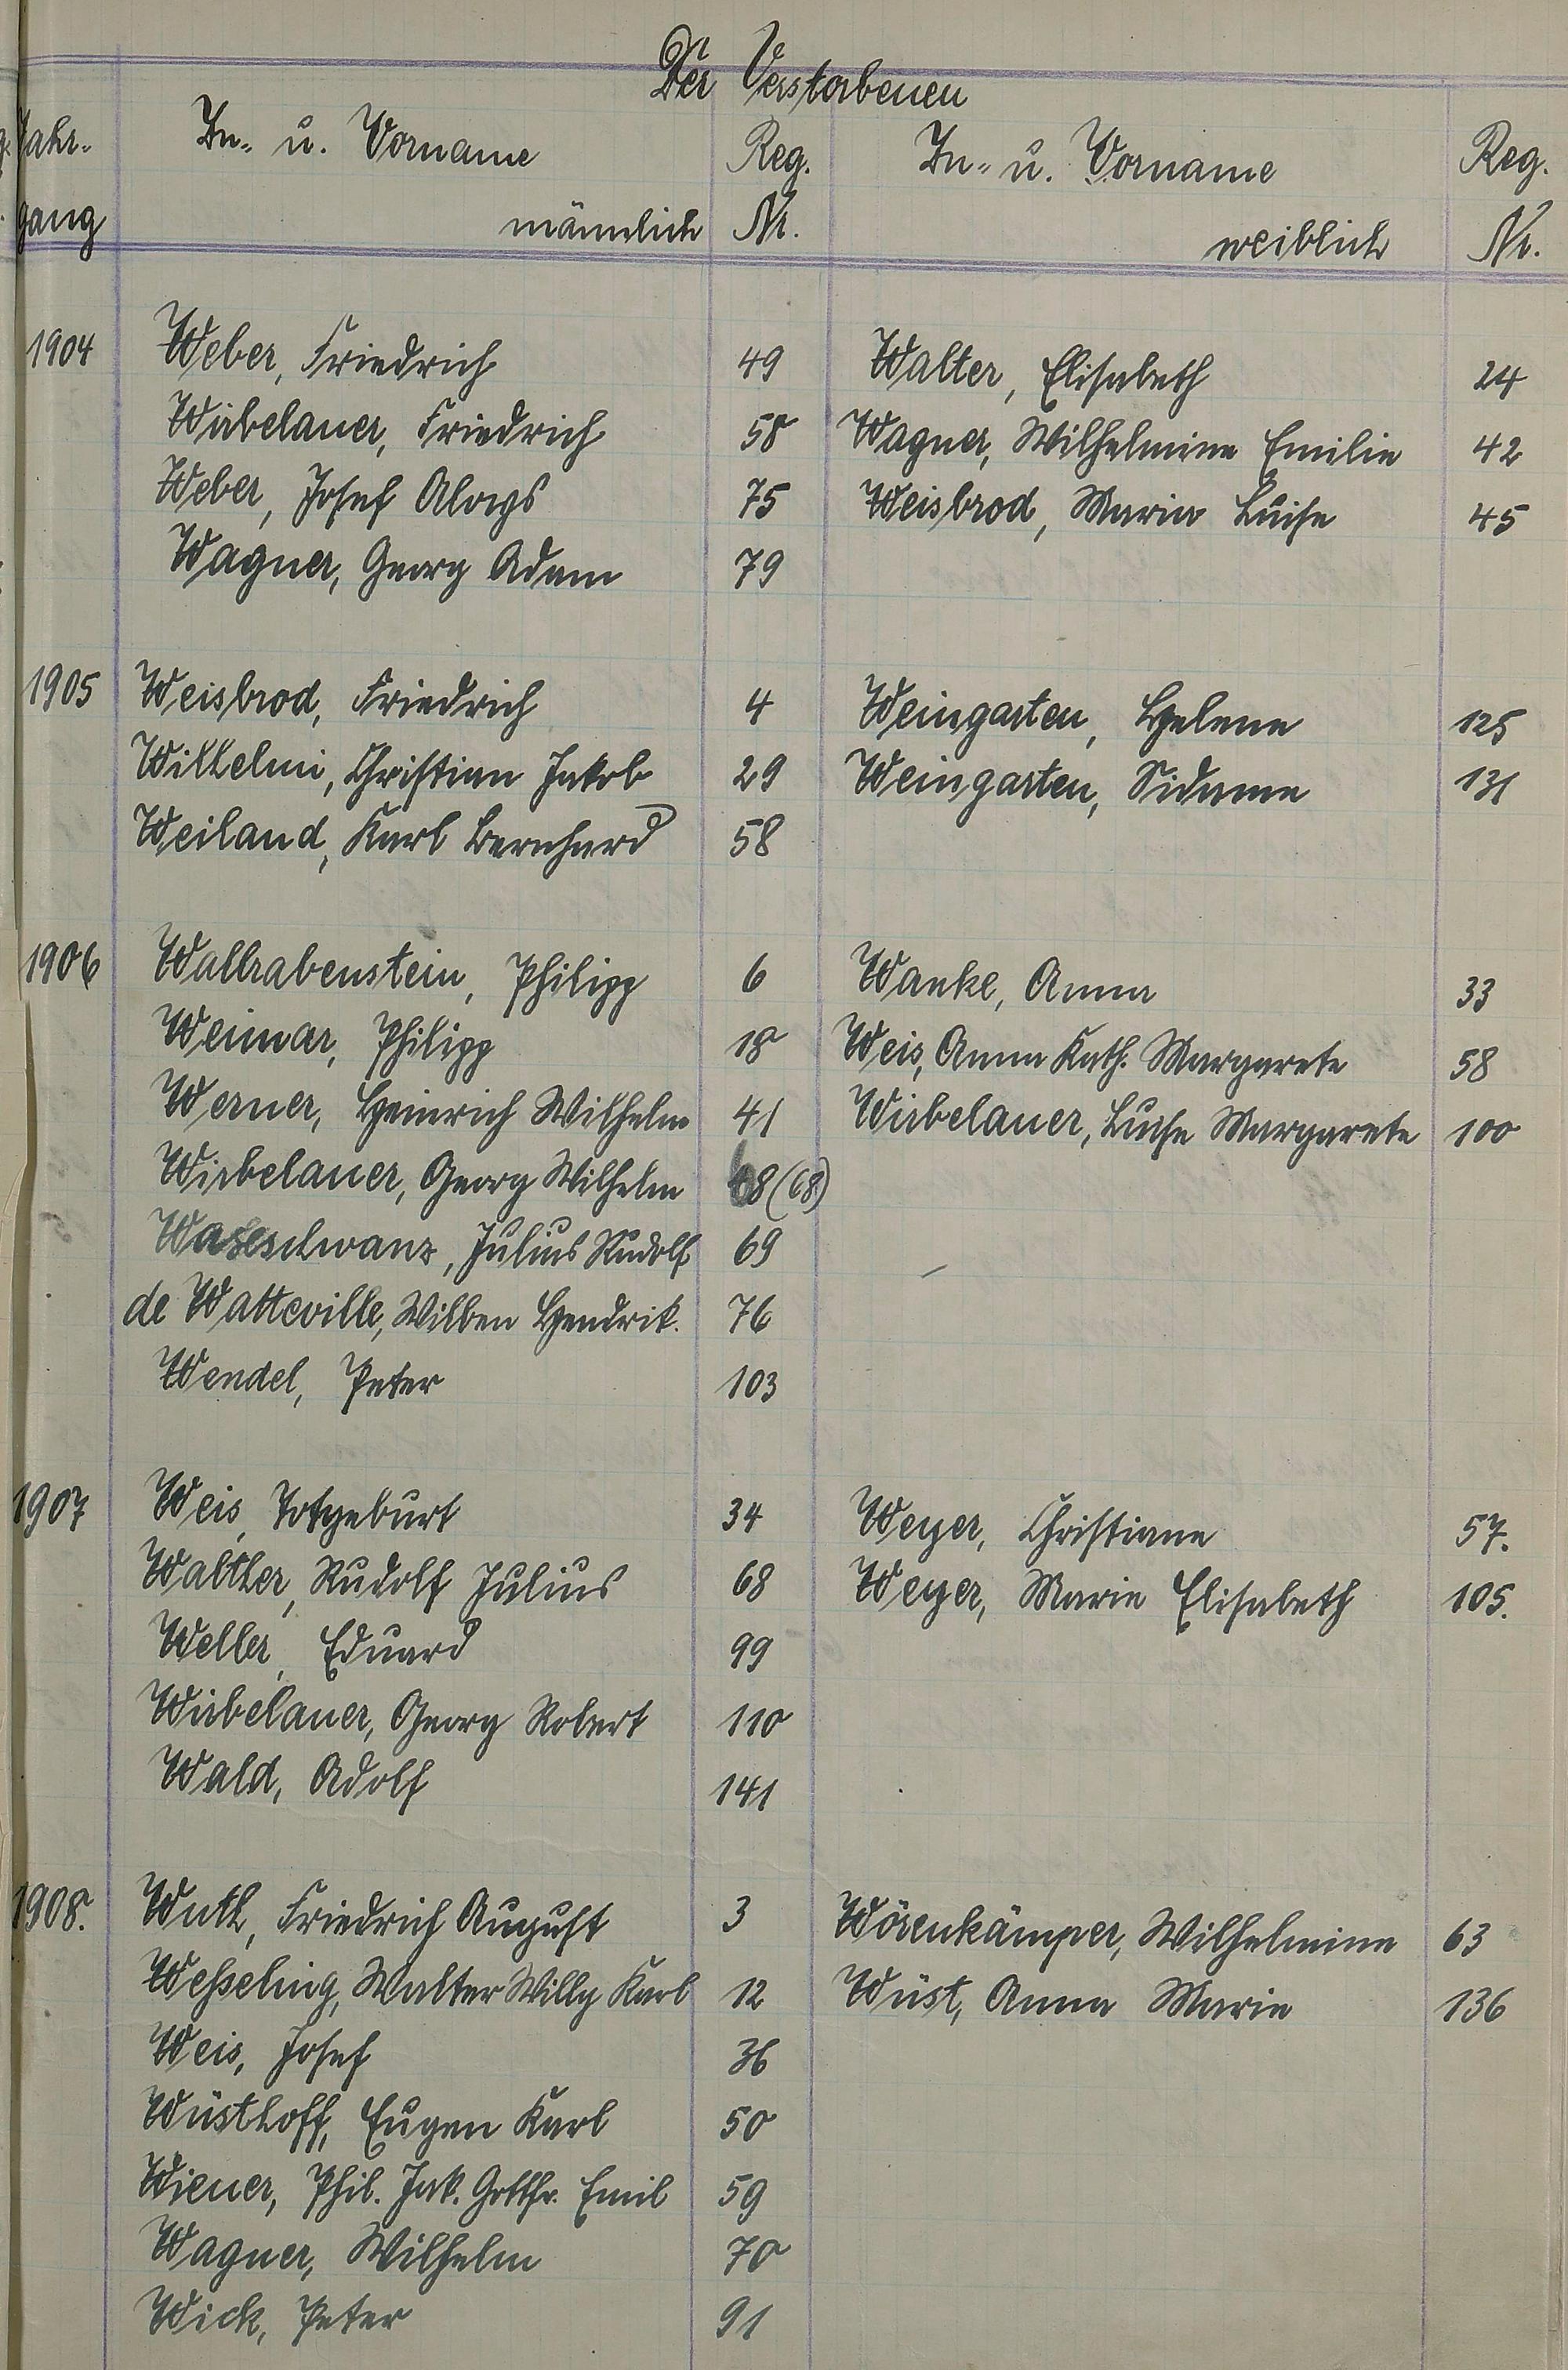 Der Verstorbenen
Jahr- Zu- u. Vorname Reg. Zu- u. Vorname Reg.
gang männlich Nr. weiblich Nr.
1904 Weber, Friedrich 49 Walter, Elisabeth 24
Wirbelauer, Friedrich 58 Wagner, Wilhelmine Emilie 42
Weber, Josef Aloys 75 Weisbrod, Maria Luise 45
Wagner, Georg Adam 79
1905 Weisbrod, Friedrich 4 Weingarten, Helene 125
Wilhelmi, Christian Jakob 29 Weingarten, Sidonne 131
Weiland, Karl Bernhard 58
1906 Wallrabenstein, Philipp 6 Wanke, Anna 33
Weimar, Philipp 18 Weis, Anna Kath. Margarete 58
Werner, Heinrich Wilhelm 41 Wirbelauer, Luise Margarete 100
Wirbelauer, Georg Wilhelm 68 (68)
Julius Rudolf 69
de Watteville, Willem Hendrik. 76
Wendel, Peter 103
1907 Weis, Totgeburt 34 Weyer, Christiane 57.
Walther, Rudolf Julius 68 Weyer, Marie Elisabeth 105.
Weller, Eduard 99
Wirbelauer, Georg Robert 110
Wald, Adolf 141
1908. Wuth, Friedrich August 3 Wörenkämper, Wilhelmine 63
Weßeling, Walter Willy Karl 12 Wüst, Anna Marie 136
Weis, Josef 36
Wüsthoff, Eugen Karl 50
Wiener, Phil. Jak. Gottfr. Emil 59
Wagner, Wilhelm 70
Wick, Peter 91